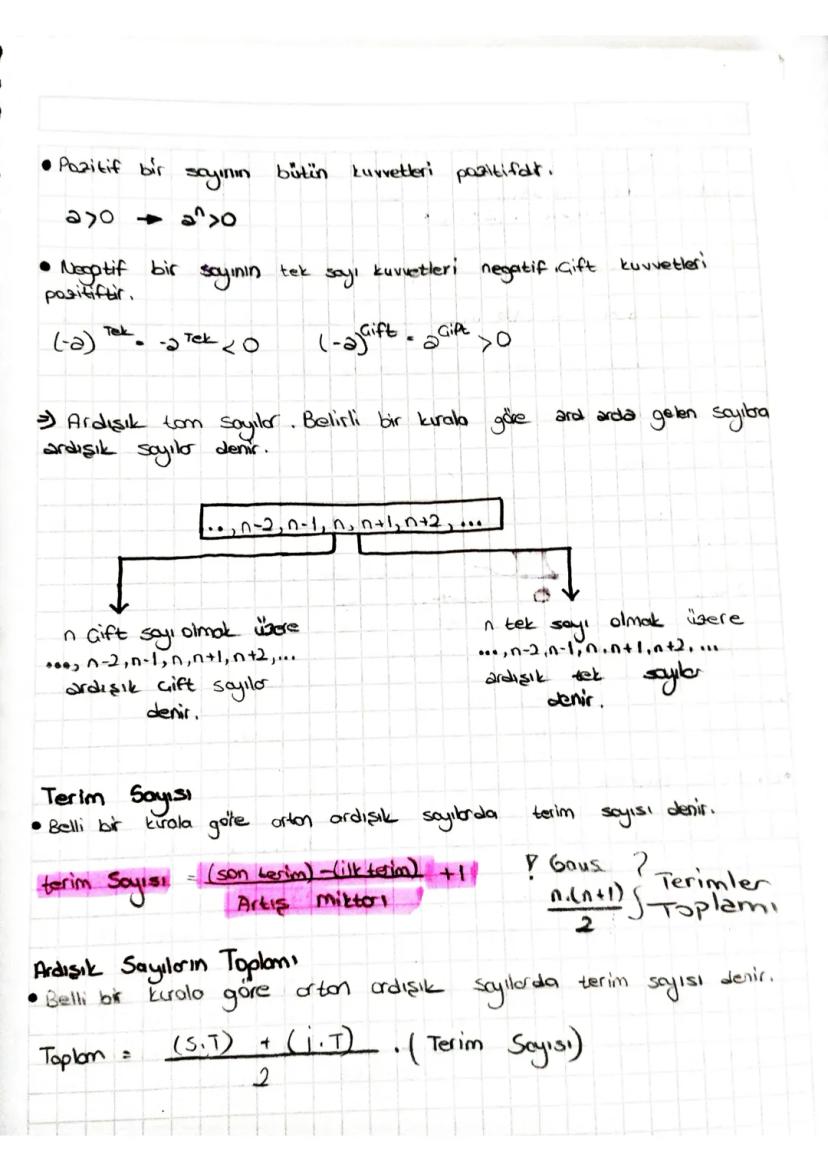 • Pozitif bir sayının bütün kuvvetleri pozitifdir.
a>0 → aⁿ>0
• Negatif bir sayının tek sayı kuvvetleri negatif, Çift kuvvetleri
pozitiftir.
(-a)^Tek = -a^Tek < 0 (-a)^Çift = a^Çift > 0
⇒ Ardışık tam sayılar. Belirli bir kurala göre ard arda gelen sayılara
ardışık sayılar denir.
.., n-2, n-1, n, n+1, n+2, ...
n Çift sayı olmak üzere
..., n-2, n-1, n, n+1, n+2, ...
ardışık Çift sayılar
denir.
n tek sayı olmak üzere
..., n-2, n-1, n, n+1, n+2, ...
ardışık tek sayılar
denir.
Terim Sayısı
• Belli bir kurala göre artan ardışık sayılarda terim sayısı denir.
terim Sayısı = (son terim) - (ilk terim) / Artış miktarı + 1
! Gaus
n.(n+1) / 2 } Terimler
Toplamı
Ardışık Sayıların Toplamı
• Belli bir kurala göre artan ardışık sayılarda terim sayısı denir.
Toplam = (S.T) + (İ.T) / 2 . (Terim Sayısı)